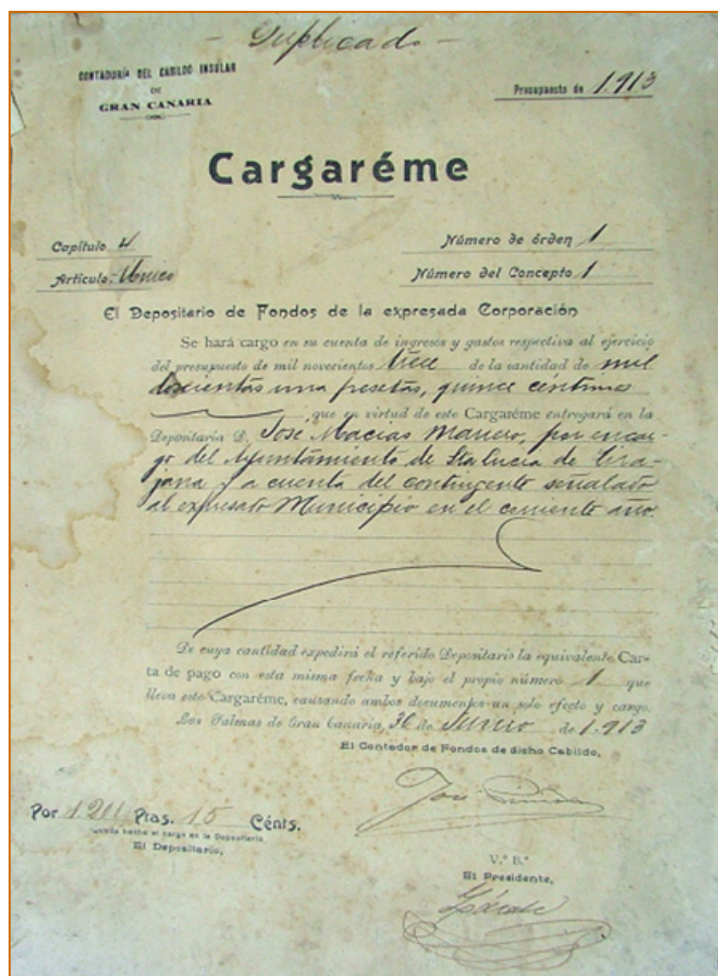 - Duplicado -
CONTADURÍA DEL CABILDO INSULAR
DE
GRAN CANARIA
Presupuesto de 1.913
Cargaréme
Capítulo 4
Número de órden 1
Artículo: Unico
Número del Concepto 1
El Depositario de Fondos de la expresada Corporación
Se hará cargo en su cuenta de ingresos y gastos respectiva al ejercicio
del presupuesto de mil novecientos trece de la cantidad de mil
doscientas una pesetas, quince céntimos
que en virtud de este Cargaréme entregará en la
Depositaría D. José Macías Manero, por encar-
go del Ayuntamiento de Sta Lucia de Tira-
jana y a cuenta del contingente señalado
al expresado Municipio en el corriente año.
De cuya cantidad expedirá el referido Depositario la equivalente Car-
ta de pago con esta misma fecha y bajo el propio número 1 que
lleva este Cargaréme, causando ambos documentos un solo efecto y cargo.
Las Palmas de Gran Canaria, 30 de Junio de 1.913
El Contador de Fondos de dicho Cabildo,
José
Por 1.201 Ptas. 15 Cénts.
Queda hecho el cargo en la Depositaría
El Depositario,
V.º B.º
El Presidente,